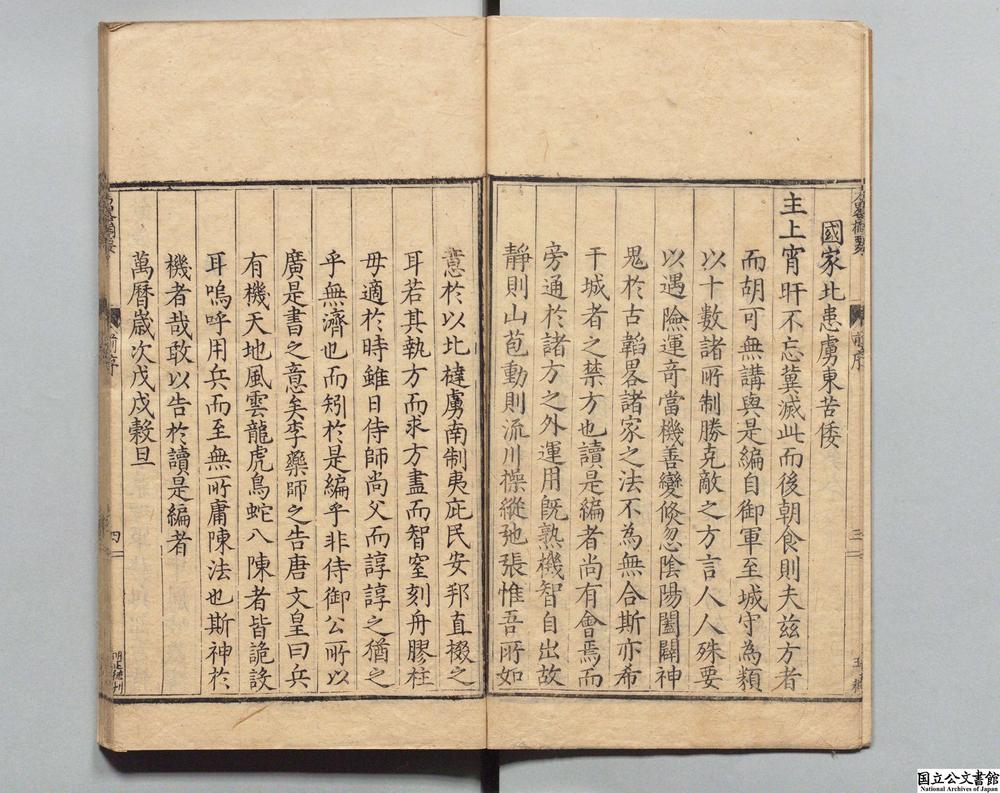 國家北患虜東苦倭
主上宵旰不忘冀滅此而後朝食則夫茲方者
而胡可無講與是編自御軍至城守為類
以十數諸所制勝克敵之方言人人殊要
以遇險運奇當機善變倏忽陰陽闔闢神
鬼於古韜畧諸家之法不為無合斯亦希
干城者之禁方也讀是編者尚有會焉而
旁通於諸方之外運用旣熟機智自出故
靜則山苞動則流川操縱弛張惟吾所如
前序
三
意於以北撻虜南制夷庇民安邦直掇之
耳若其執方而求方盡而智窒刻舟膠柱
毋適於時雖日侍師尚父而諄諄之猶之
乎無濟也而矧於是編乎非侍御公所以
廣是書之意矣李藥師之告唐文皇曰兵
有機天地風雲龍虎鳥蛇八陳者皆詭設
耳嗚呼用兵而至無所庸陳法也斯神於
機者哉敢以告於讀是編者
萬曆歲次戊戌穀旦
前序
四
国立公文書館
National Archives of Japan